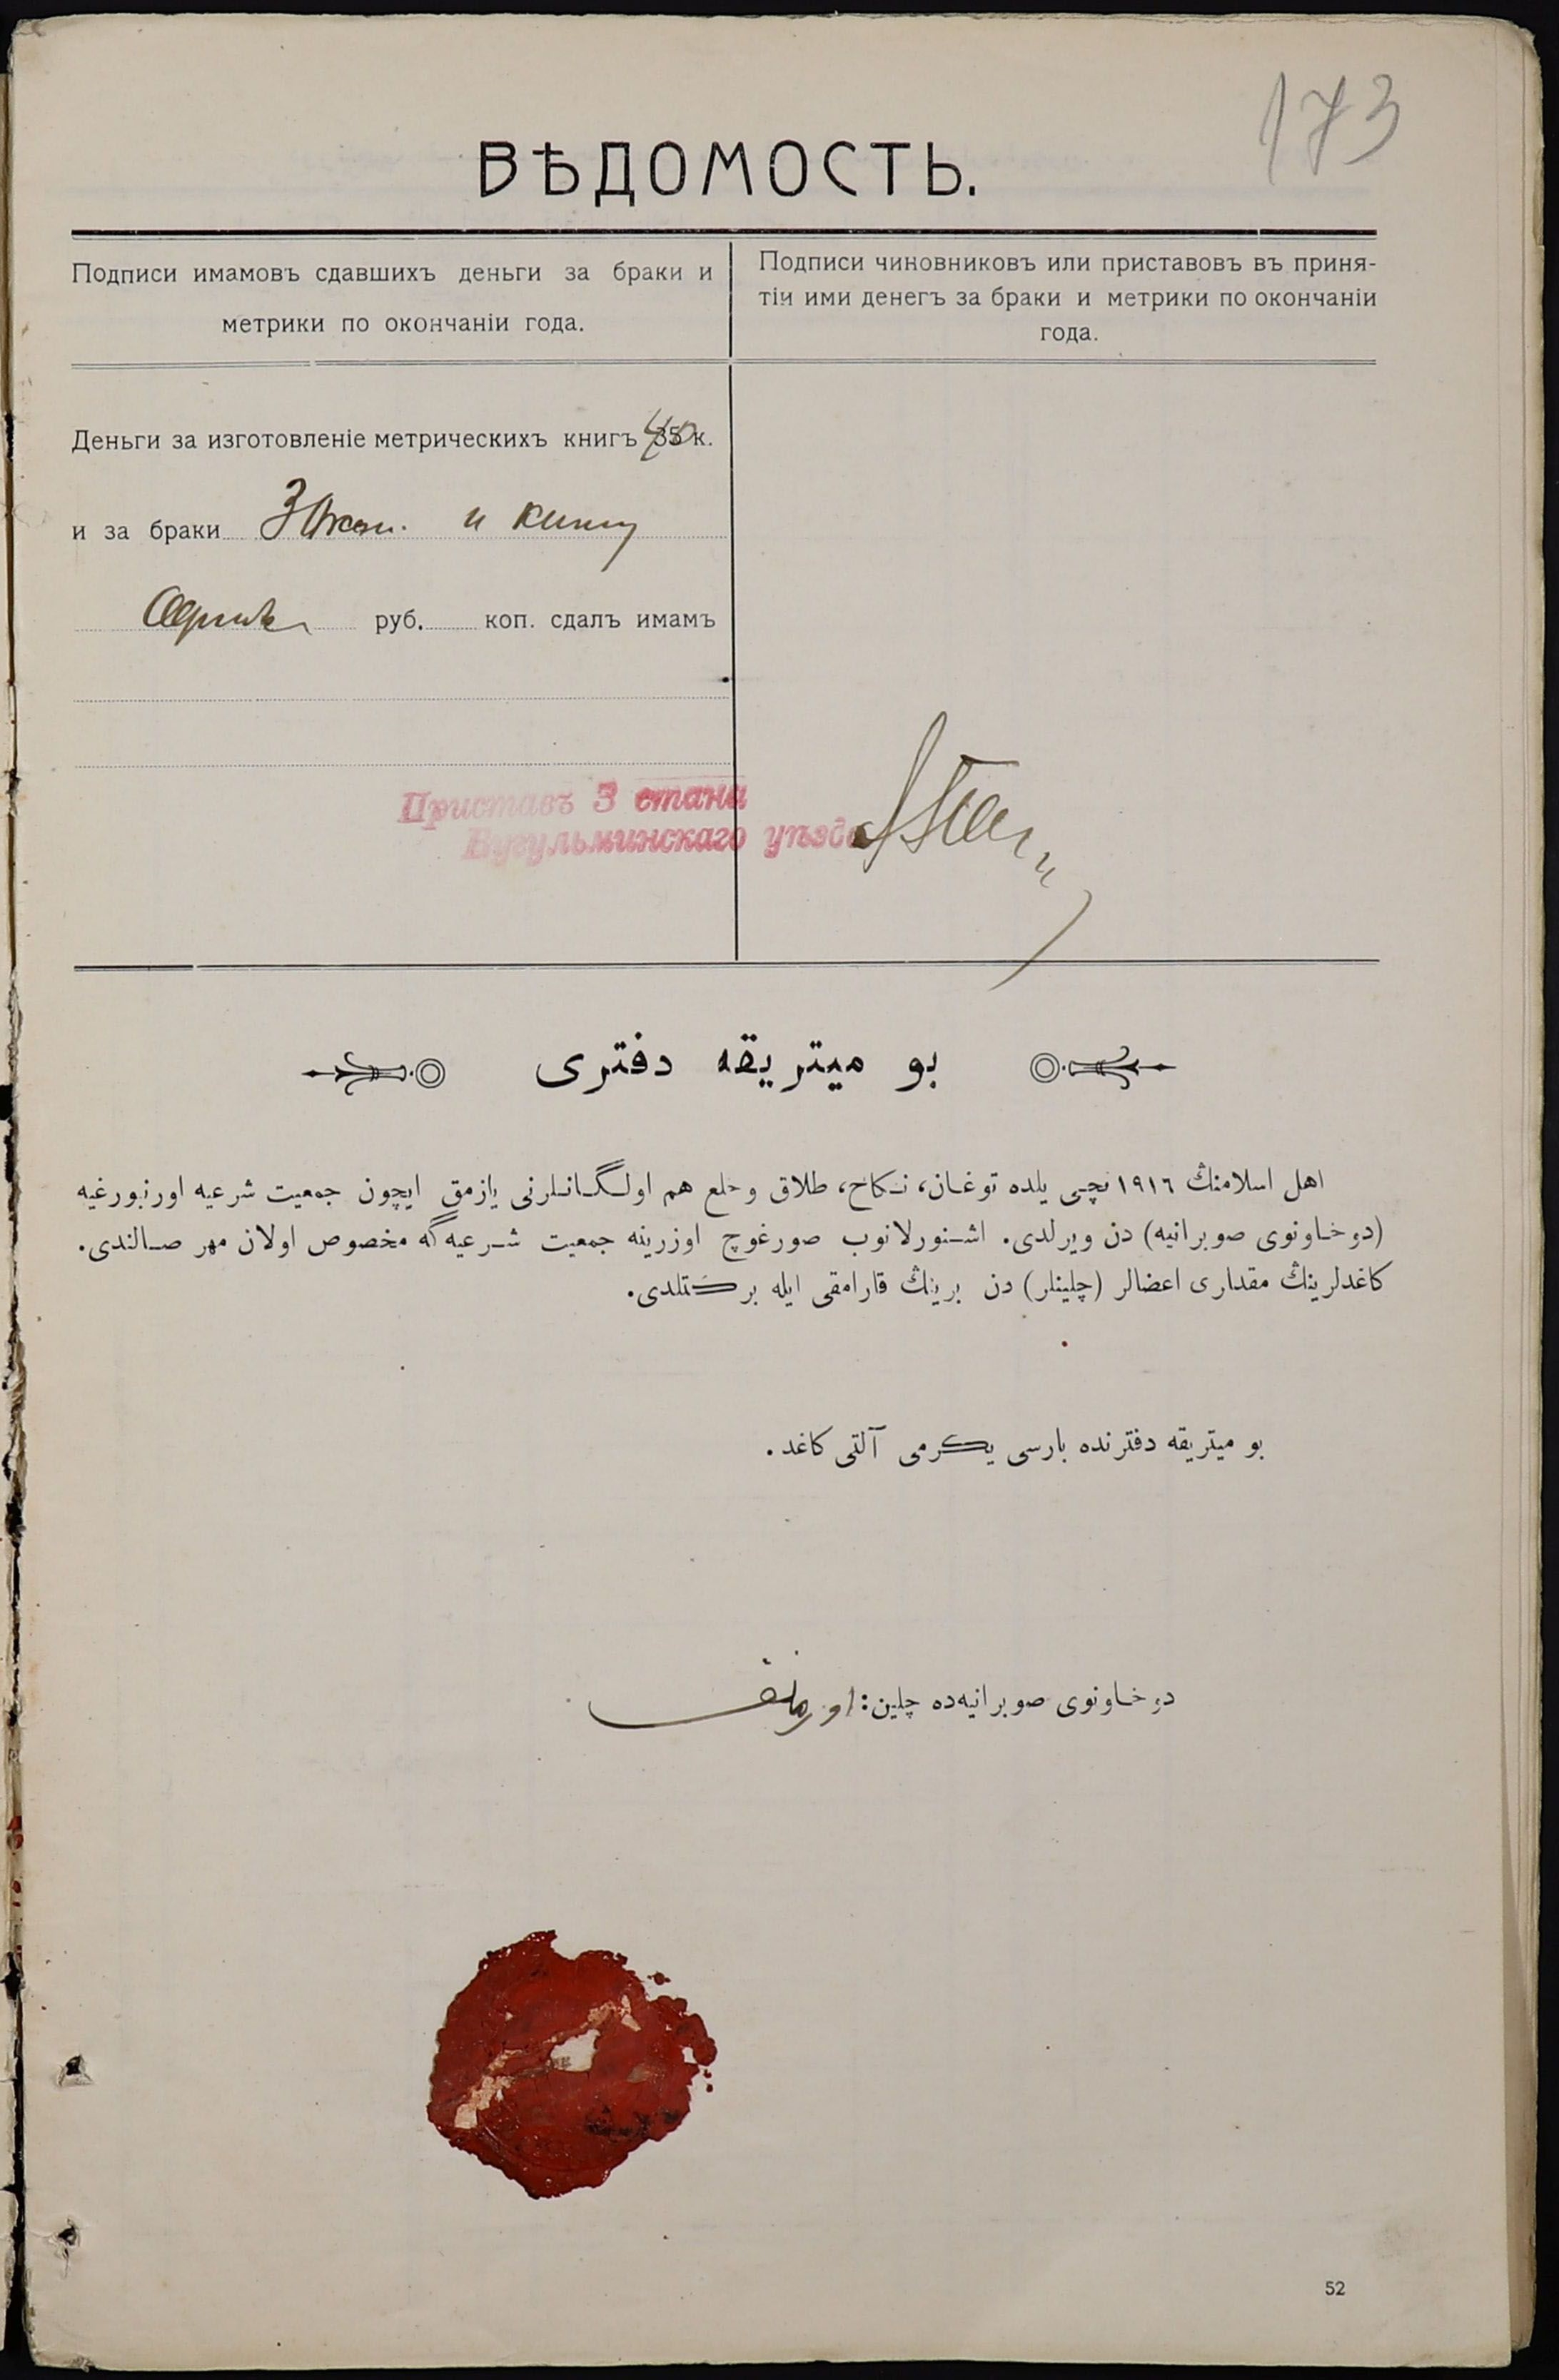 173
ВѢДОМОСТЬ.
Подписи имамовъ сдавшихъ деньги за браки и
метрики по окончаніи года.
Подписи чиновниковъ или приставовъ въ приня-
тіи ими денегъ за браки и метрики по окончаніи
года.
Деньги за изготовленіе метрическихъ книгъ 40 к.
и за браки и книгу
руб. коп. сдалъ имамъ
Приставъ 3 стана
Бугульминскаго уѣзда
بو ميتريقه دفترى
اهل اسلامنڭ ١٩١٦ نچى يلده توغان، نكاح، طلاق وخلع هم اولگانلرنى يازمق ايچون جمعيت شرعيه اورنبورغيه
(دوخاونوى صوبرانيه) دن ويرلدى. اشنورلانوب صورغوچ اوزرينه جمعيت شرعيه گه مخصوص اولان مهر صالندى.
كاغدلرينڭ مقدارى اعضالر (چلينلر) دن برينڭ قارامقى ايله بركتلدى.
بو ميتريقه دفترنده بارسى يكرمى آلتى كاغد.
دوخاونوى صوبرانيه‌ده چلين:
52